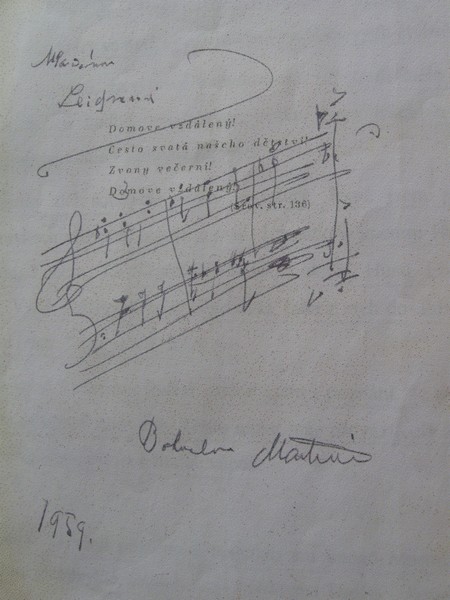 Domove vzdálený!
Cesto svatá našeho dětství!
Zvony večerní!
Domove vzdálený!
(Slov. str. 136)
Bohuslav Martinů
1959.